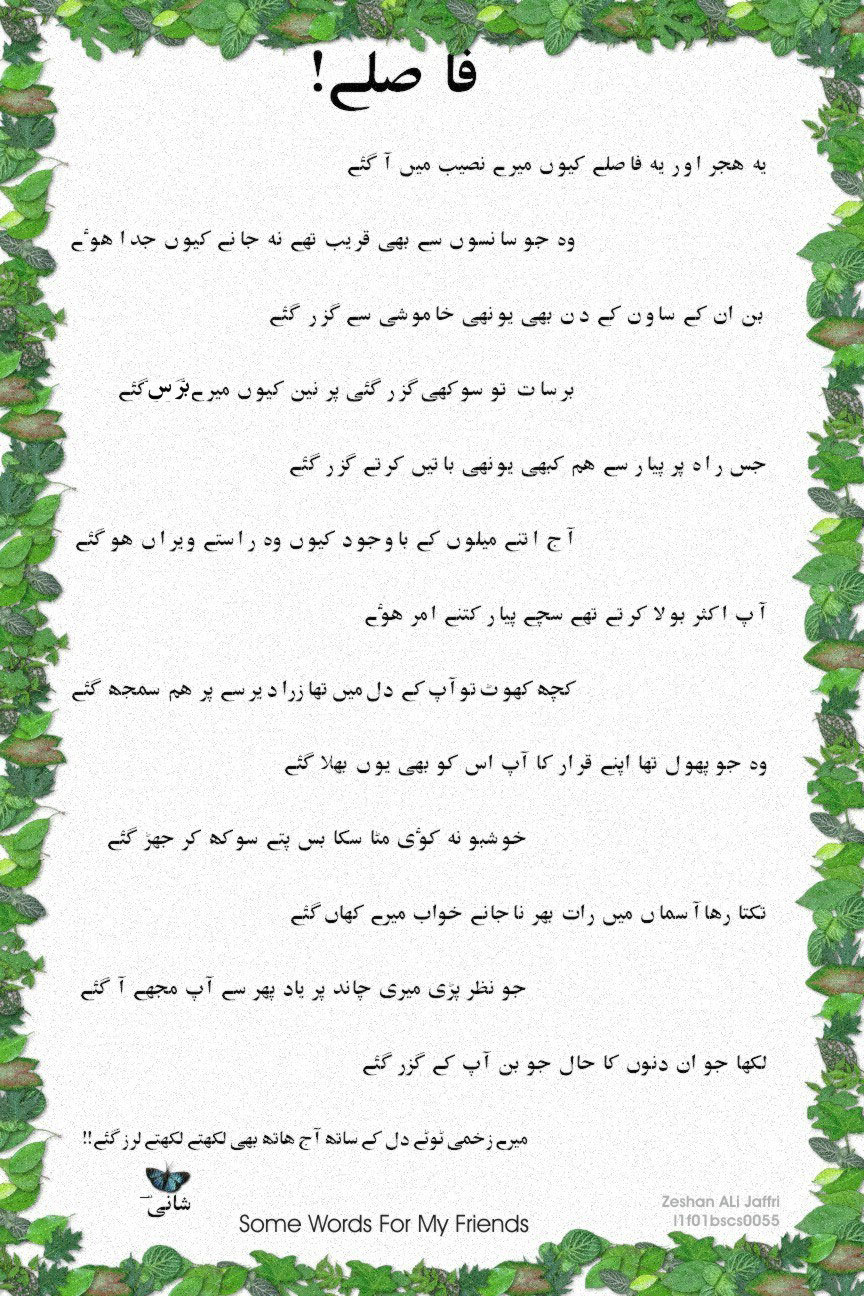 فاصلے!
یہ ھجر اور یہ فاصلے کیوں میرے نصیب میں آ گئے
وہ جو سانسوں سے بھی قریب تھے نہ جانے کیوں جدا ھوۓ
بن ان کے ساون کے دن بھی یونھی خاموشی سے گزر گئے
برسات تو سوکھی گزر گئی پر نین کیوں میرے برَس گئے
جس راہ پر پیار سے ھم کبھی یونھی باتیں کرتے گزر گئے
آج اتنے میلوں کے باوجود کیوں وہ راستے ویراں ھو گئے
آپ اکثر بولا کرتے تھے سچے پیار کتنے امر ھوۓ
کچھ کھوٹ تو آپ کے دل میں تھا زرا دیر سے پر ھم سمجھ گئے
وہ جو پھول تھا اپنے قرار کا آپ اس کو بھی یوں بھلا گئے
خوشبو نہ کوئی مٹا سکا بس پتے سوکھ کر جھڑ گئے
تکتا رھا آسماں میں رات بھر نا جانے خواب میرے کھاں گئے
جو نظر پڑی میری چاند پر یاد پھر سے آپ مجھے آ گئے
لکھا جو ان دنوں کا حال جو بن آپ کے گزر گئے
میرے زخمی ٹوٹے دل کے ساتھ آج ھاتھ بھی لکھتے لکھتے لرز گئے!!
شانی
Some Words For My Friends
Zeshan ALi Jaffri
l1f01bscs0055